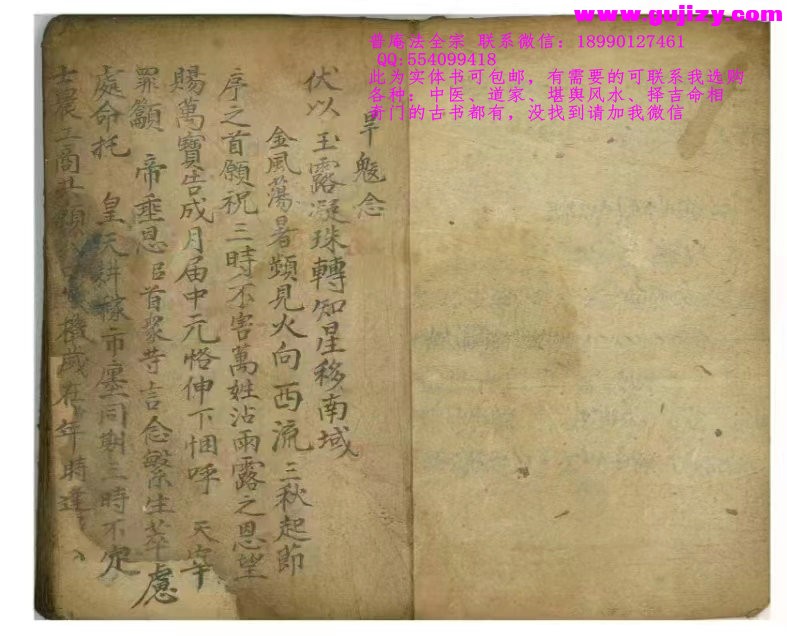 www.gujizy.com
普庵法全宗 联系微信：18990127461
QQ:554099418
此为实体书可包邮，有需要的可联系我选购
各种：中医、道家、堪舆风水、择吉命相
奇门的古书都有，没找到请加我微信
旱魃念
伏以 玉露凝珠轉知星移南域
金風蕩暑頻見火向西流 三秋起節
序之首願祝 三時不害萬姓沾雨露之恩望
賜萬寶告成月届中元恪伸下悃呼 天宇
罪籲 帝垂恩 臣首眾等言念繁生萃處
處命托 皇天耕稼市廛同期三時不
士農工商 歲在 年時達